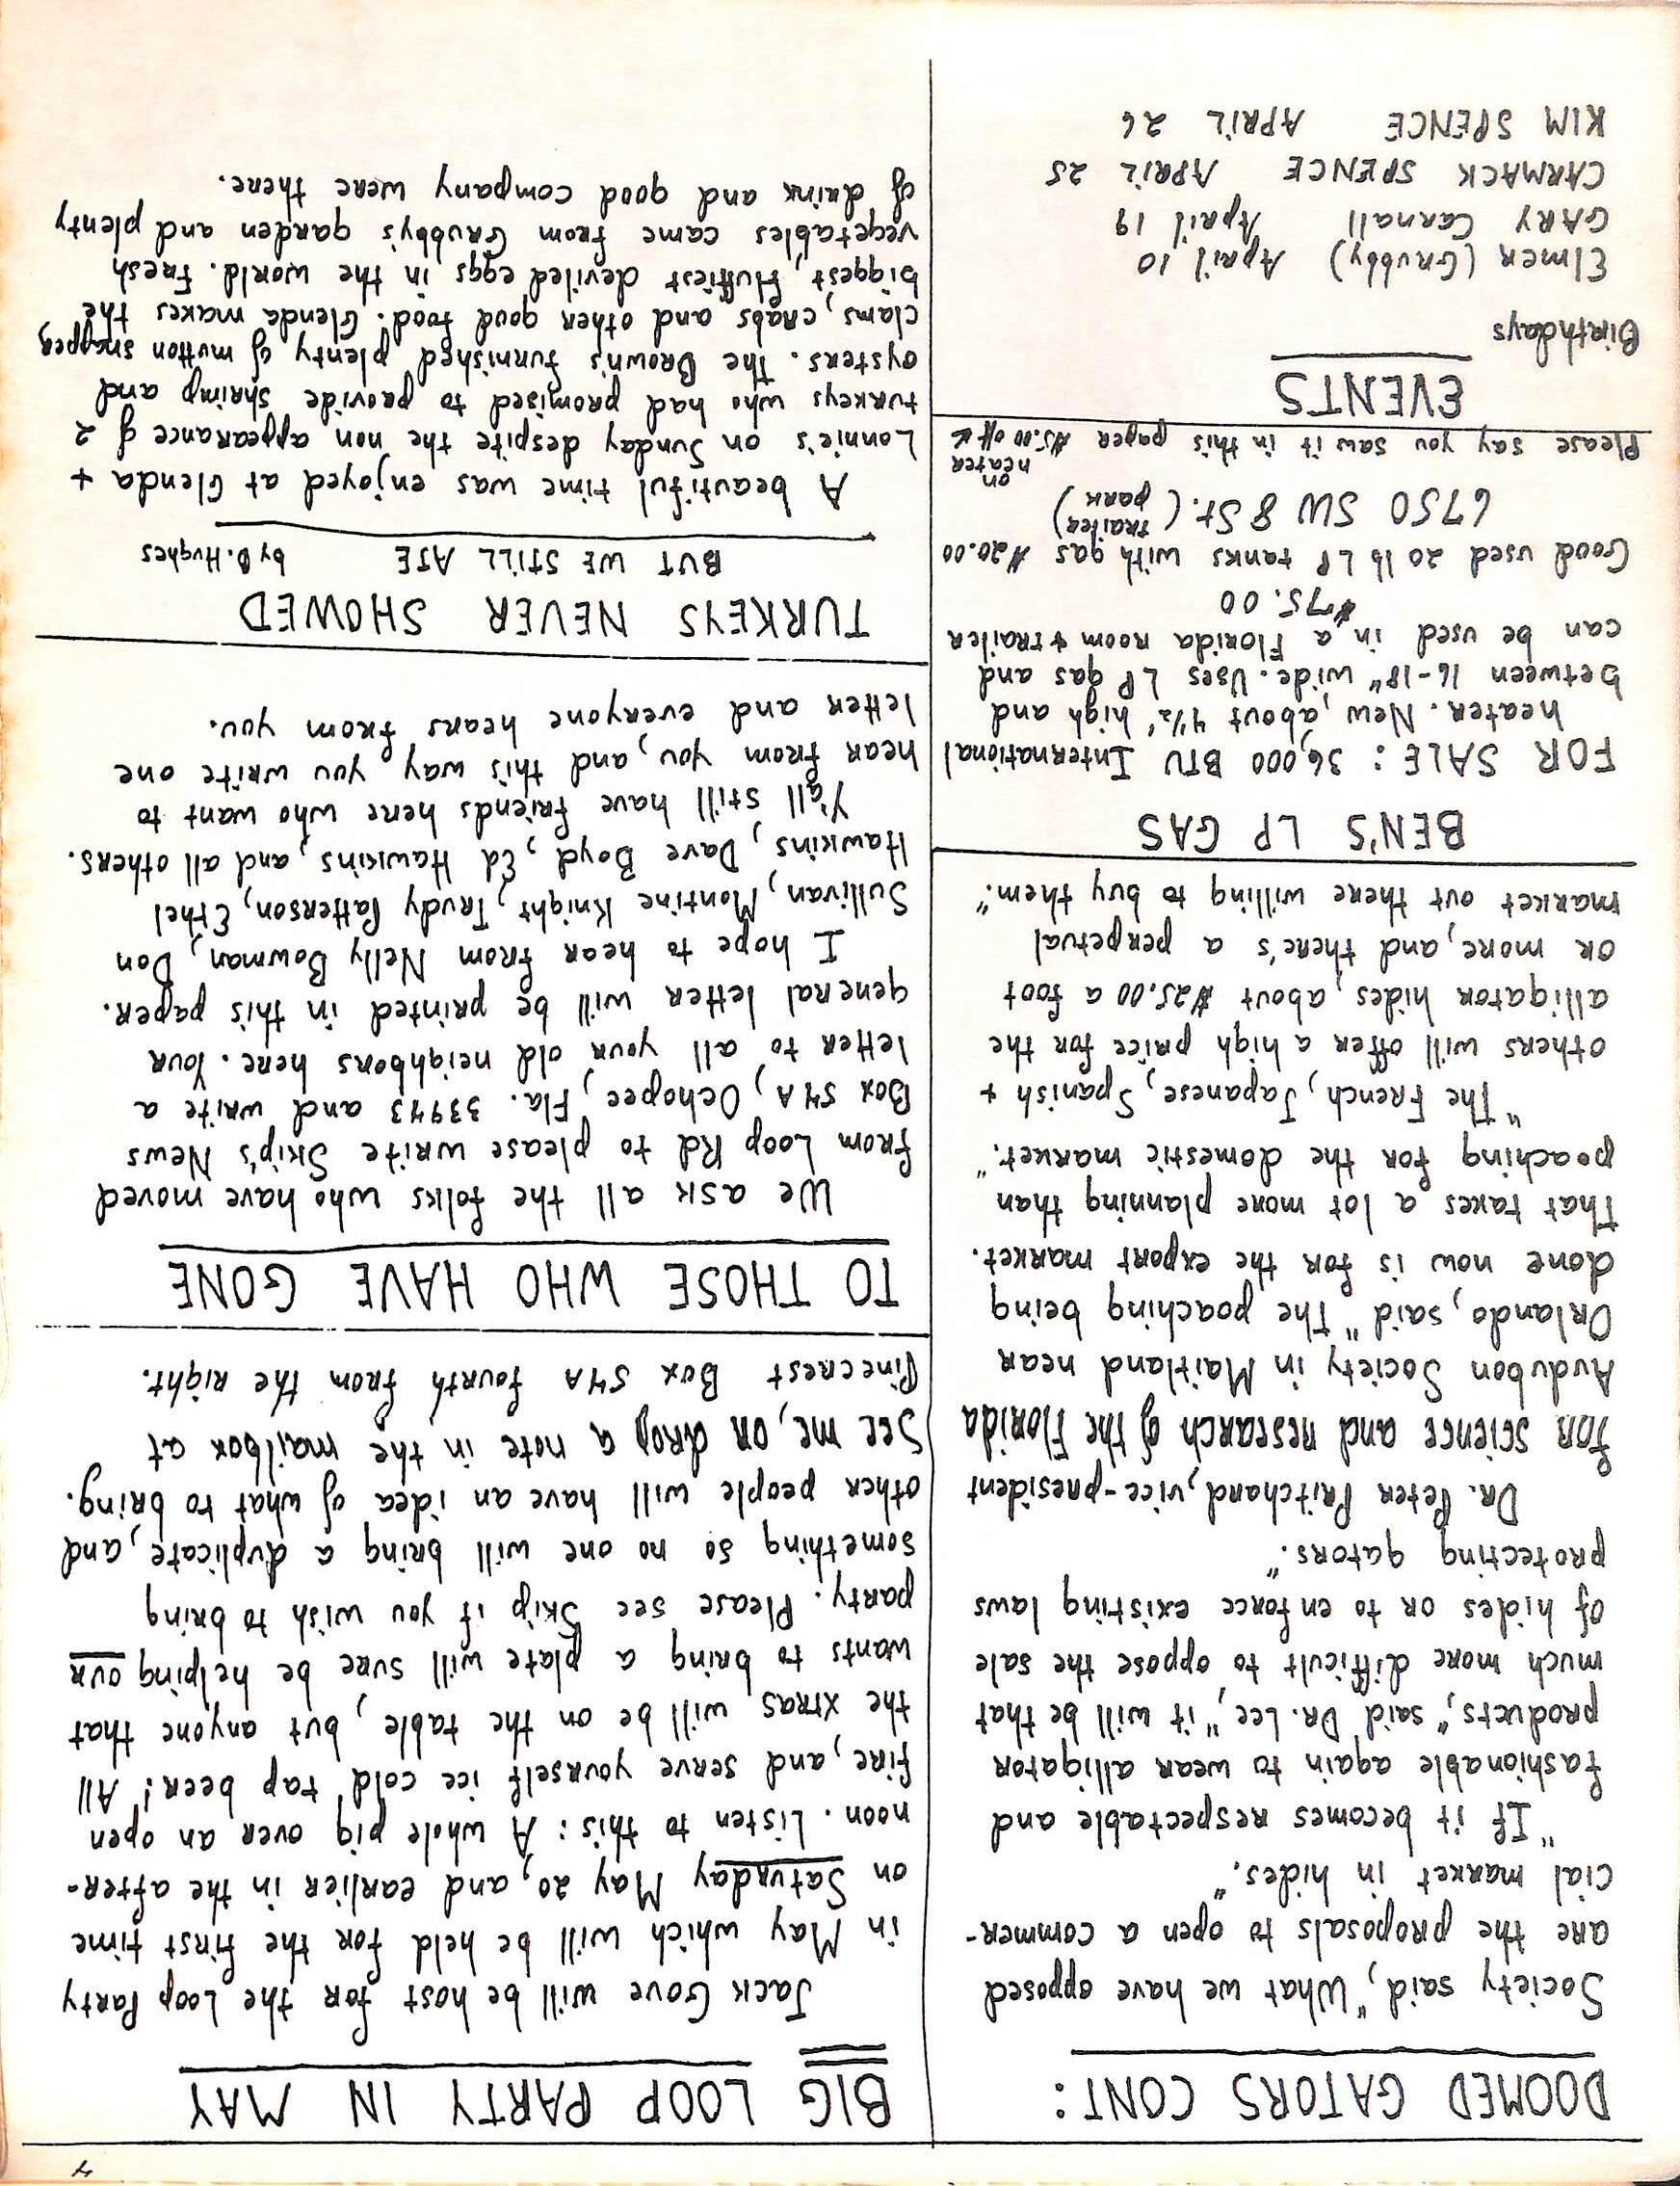 4
DOOMED GATORS CONT:
Society said, "What we have opposed
are the proposals to open a commer-
cial market in hides."
"If it becomes respectable and
fashionable again to wear alligator
products," said Dr. Lee, "it will be that
much more difficult to oppose the sale
of hides or to enforce existing laws
protecting gators."
Dr. Peter Pritchard, vice-president
for science and research of the Florida
Audubon Society in Maitland near
Orlando, said "The poaching being
done now is for the export market.
That takes a lot more planning than
poaching for the domestic market."
"The French, Japanese, Spanish +
others will offer a high price for the
alligator hides, about $25.00 a foot
or more, and there's a perpetual
market out there willing to buy them."
BEN'S LP GAS
FOR SALE: 36,000 BTU International
heater. New, about 4½' high and
between 16-18" wide. Uses LP gas and
can be used in a Florida room + trailer
$75.00
Good used 20 lb LP tanks with gas $20.00
6750 SW 8 St. (trailer park)
Please say you saw it in this paper $5.00 off
on heater
EVENTS
Birthdays
Elmer (Grubby) April 10
GARY Carnall April 19
CARMACK SPENCE APRIL 25
KIM SPENCE APRIL 26
BIG LOOP PARTY IN MAY
Jack Gove will be host for the Loop Party
in May which will be held for the first time
on Saturday May 20, and earlier in the after-
noon. Listen to this: A whole pig over an open
fire, and serve yourself ice cold tap beer! All
the xtras will be on the table, but anyone that
wants to bring a plate will sure be helping our
party. Please see Skip if you wish to bring
something so no one will bring a duplicate, and
other people will have an idea of what to bring.
See me, or drop a note in the mailbox at
Pinecrest Box 54A fourth from the right.
TO THOSE WHO HAVE GONE
We ask all the folks who have moved
from Loop Rd to please write Skip's News
Box 54A, Ochopee, Fla. 33943 and write a
letter to all your old neighbors here. Your
general letter will be printed in this paper.
I hope to hear from Nelly Bowman, Don
Sullivan, Montine Knight, Trudy Patterson, Ethel
Hawkins, Dave Boyd, Ed Hawkins, and all others.
Y'all still have friends here who want to
hear from you, and this way you write one
letter and everyone hears from you.
TURKEYS NEVER SHOWED
BUT WE STILL ATE by D. Hughes
A beautiful time was enjoyed at Glenda +
Lonnie's on Sunday despite the non appearance of 2
turkeys who had promised to provide shrimp and
oysters. The Browns furnished plenty of mutton snapper
clams, crabs and other good food. Glenda makes the
biggest, fluffiest deviled eggs in the world. Fresh
vegetables came from Grubby's garden and plenty
of drink and good company were there.